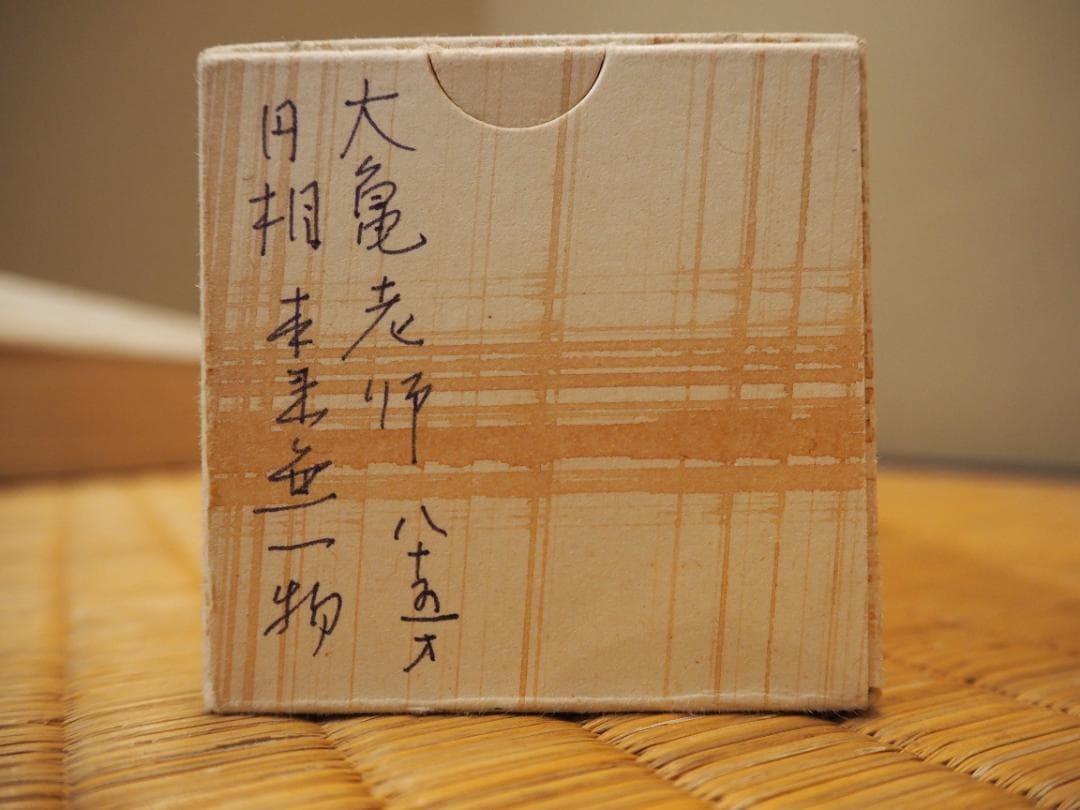 大亀老師 八十五才
円相 本来無一物